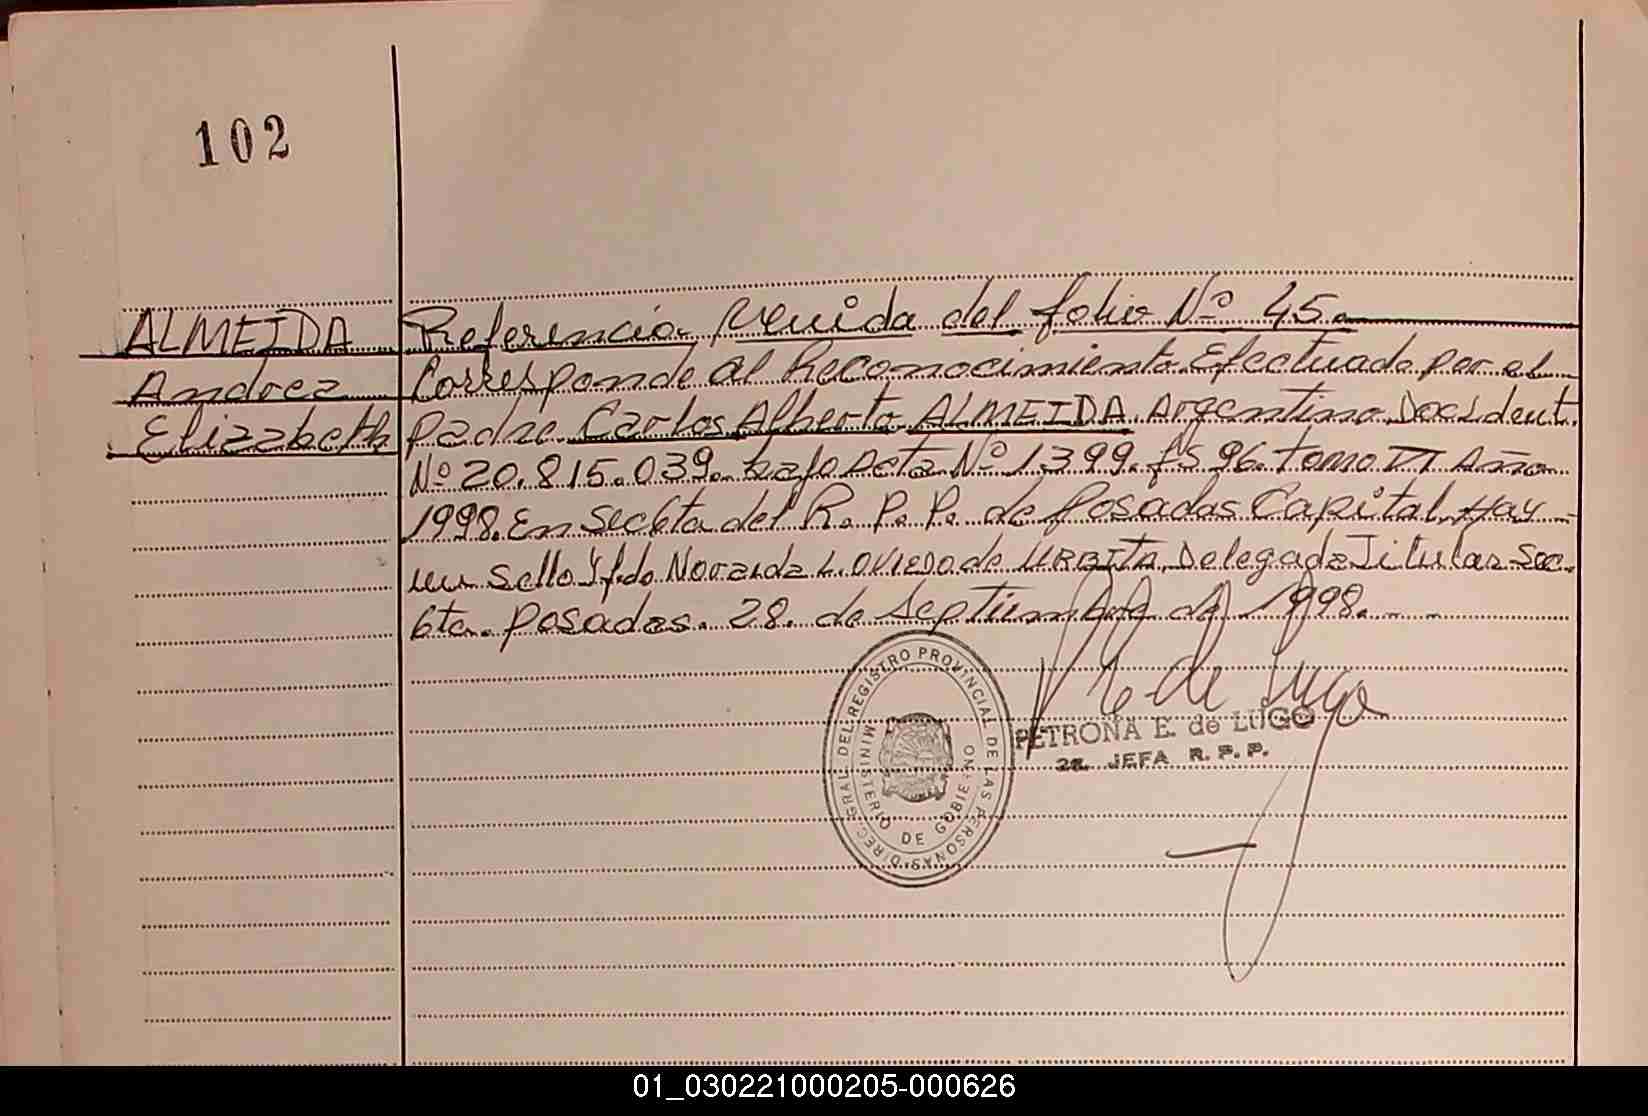 102
ALMEIDA
Andrea
Elizabeth
Referencia venida del folio Nº 45.
Corresponde al Reconocimiento Efectuado por el
padre Carlos Alberto ALMEIDA. Argentino Doc. Ident.
Nº 20.815.039. bajo Acta Nº 1399. fs 96. tomo VI Año
1998. En Sec 6ta del R. P. P. de Posadas Capital. Hay
un sello Yfdo L. OVIEDO de URBITA, Delegada Titular Sec.
6ta. Posadas. 28. de Septiembre de 1998.
DIREC. GRAL. DEL REGISTRO PROVINCIAL DE LAS PERSONAS
MINISTERIO DE GOBIERNO
P E de Lugo
PETRONA E. de LUGO
2a. JEFA R. P. P.
01_030221000205-000626